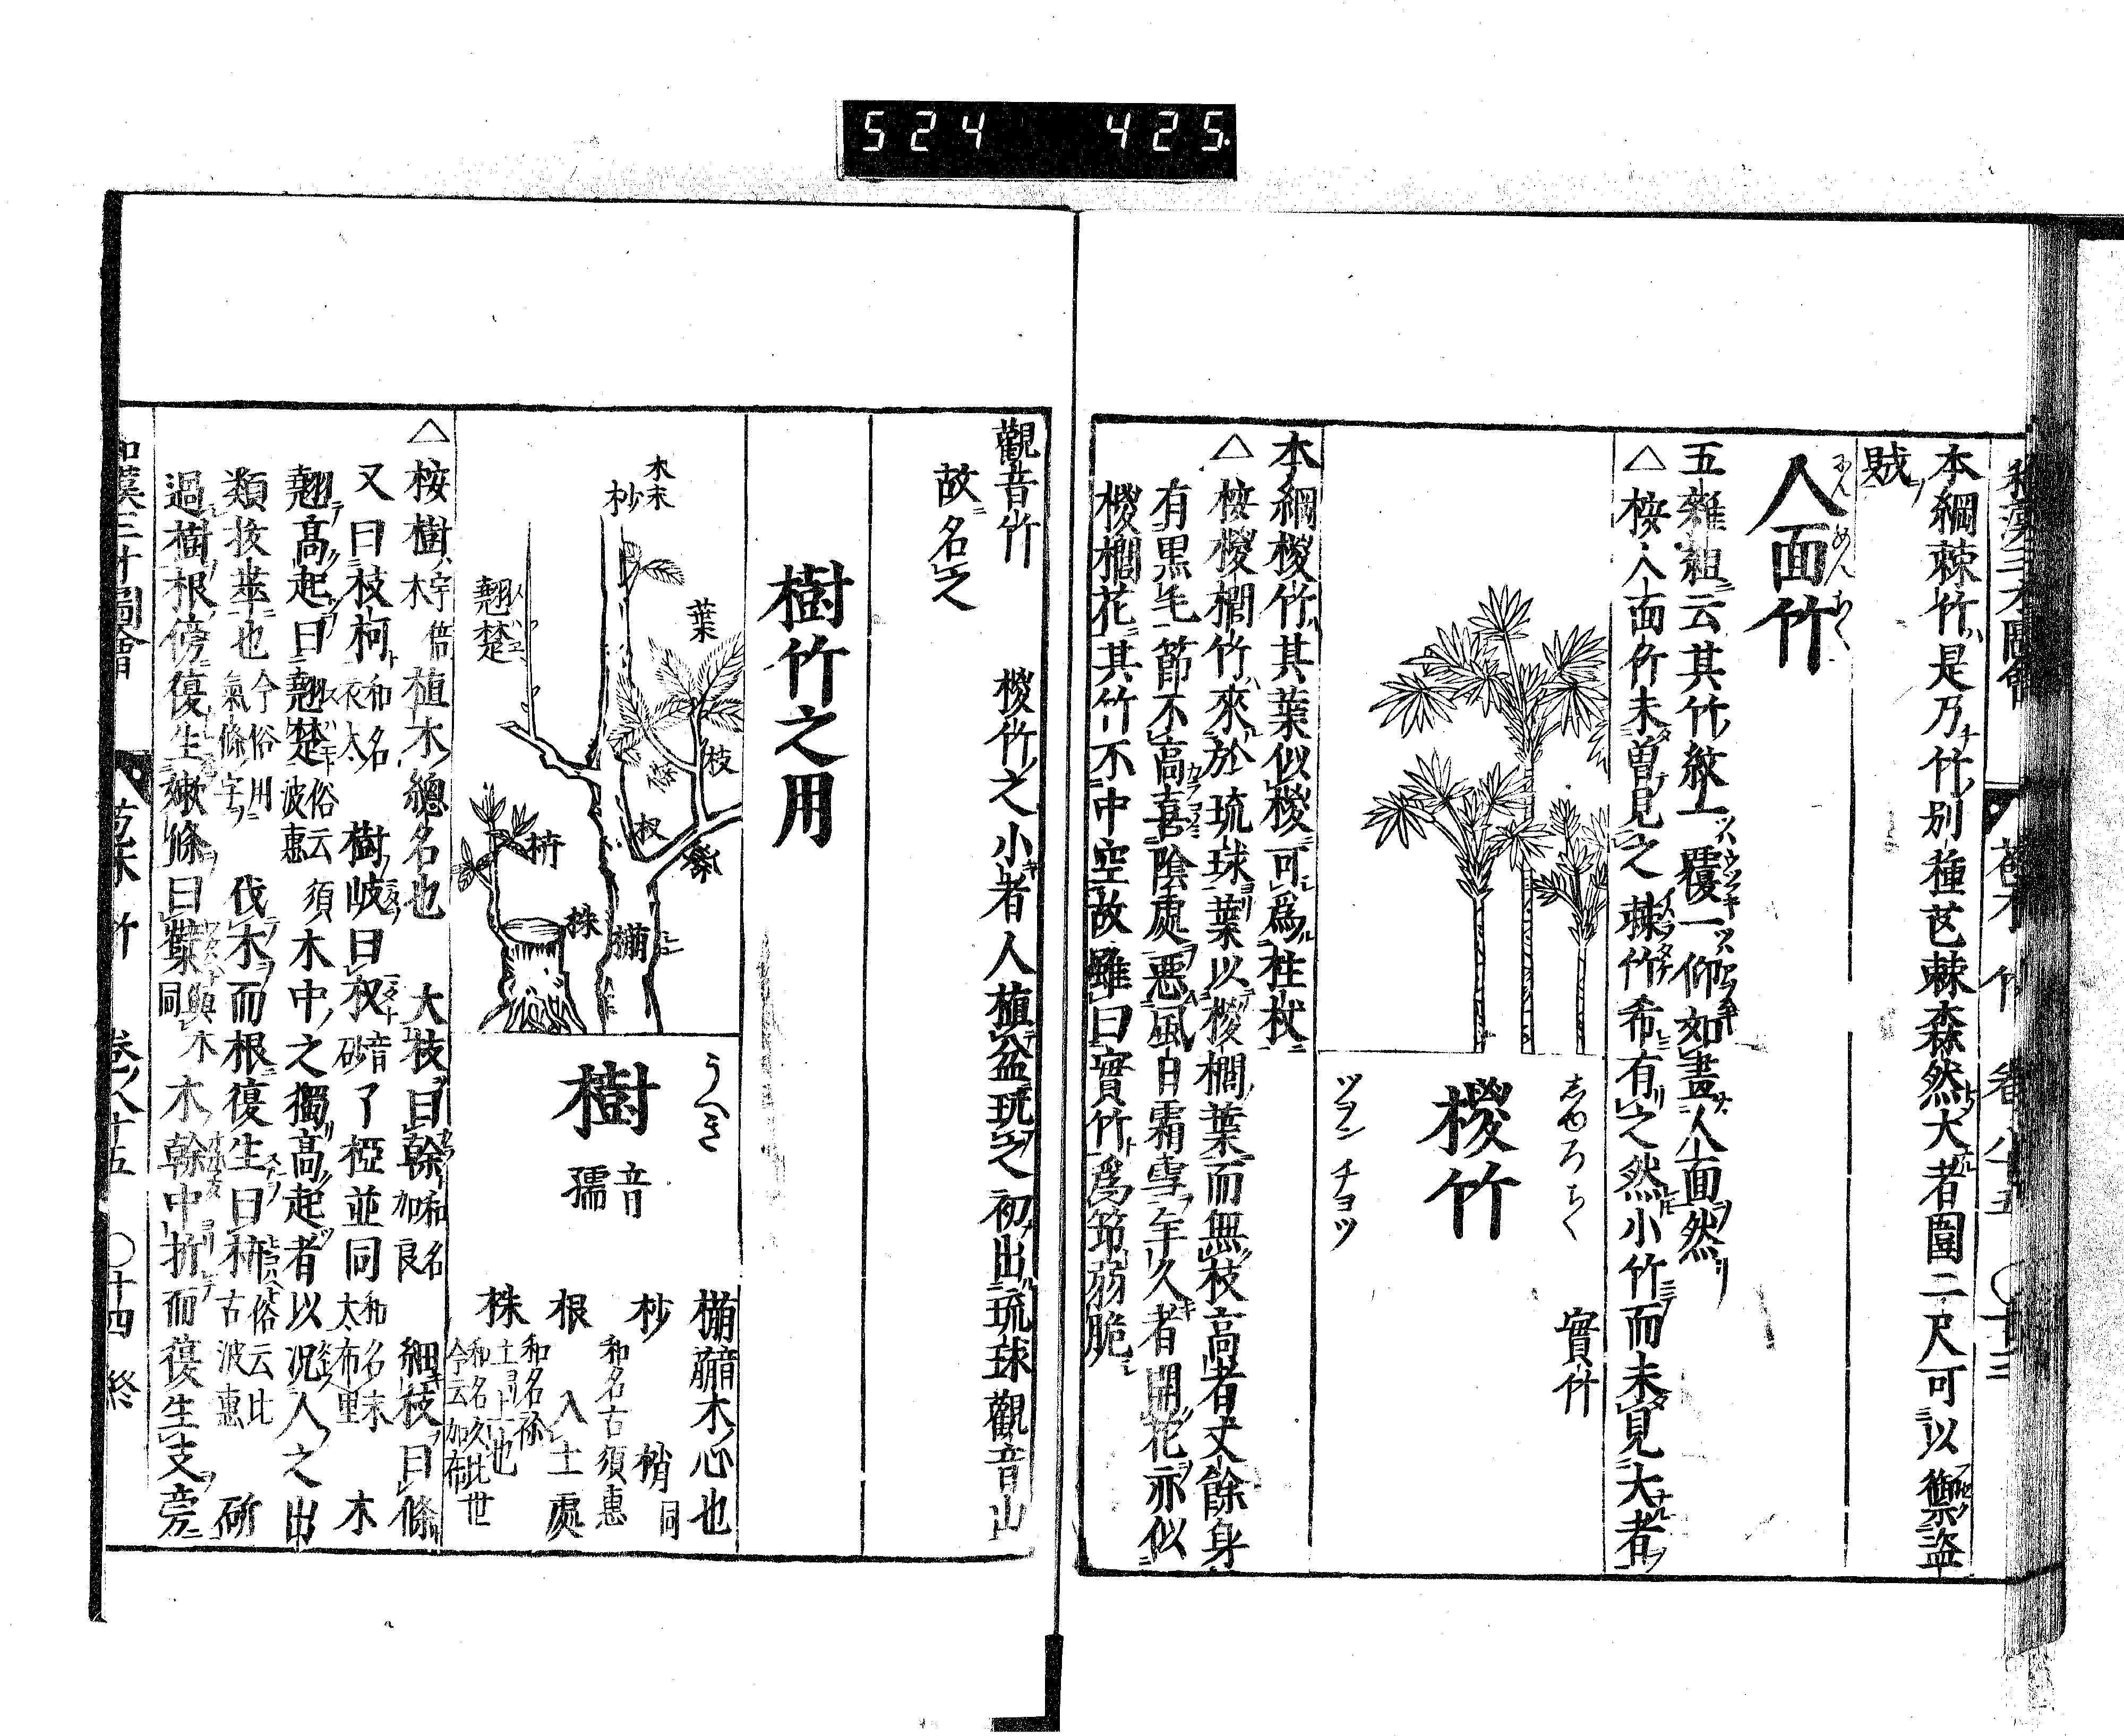 524 425
本綱棘竹是乃竹別種芒棘森然大者圍二尺可以禦盜
賊
人面竹
五雜組云其竹紋一覆一仰如畫人面然
△按人面竹未曽見之棘竹希有之然小竹而未見大者
椶竹
しゆろちく
實竹
ツヲン チヨツ
本綱椶竹其葉似椶可爲柱杖
△按椶櫚竹來於琉球葉以椶櫚葉而無枝高者丈餘身
有黒毛節不高喜陰處惡風日霜雪年久者開花亦似
椶櫚花其竹不中空故雖曰實竹爲笻弱脆
觀音竹 椶竹之小者人植盆玩之初出琉球觀音山
故名之
樹竹之用
木末
杪
葉
翹楚
枝
條
杈
枿
株
樠
うへき
樹
音
孺
木心也
杪 梢同
和名古須惠
根 入土處
和名祢
株 土上也
和名久比世
今云加布
△按樹木字倍植木總名也 大枝曰幹和名加良 細枝曰條
又曰枝柯和名衣太 樹岐曰杈音砂了椏並同和名末太布里 木
翹高起曰翹楚俗云須波惠 木中之獨高起者以况人之出
類抜萃也今俗用氣條字 伐木而根復生曰枿俗云比古波惠 斫
過樹根傍復生嫩條曰蘖 木幹中折而復生支旁
和漢三才圖會 苞木 竹 卷ノ八十五 〇十四 終